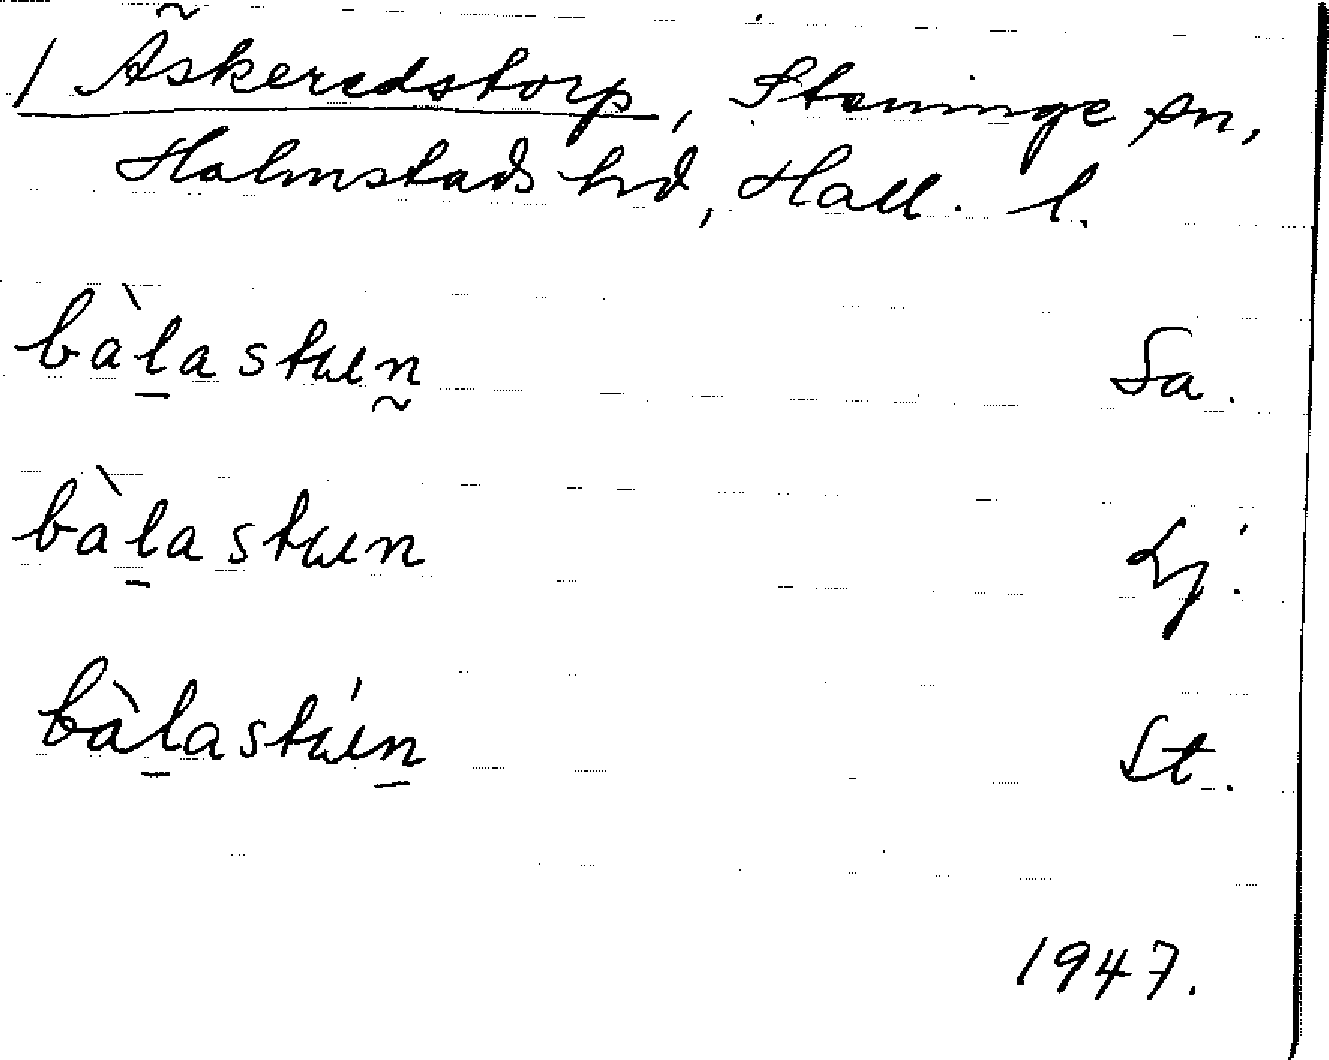 / Äskeredstorp, Steninge sn,
Halmstads hd, Hall. l.
bàlastɯɛn Sa.
bàlastɯɛn Lj.
bàlastɯ́ɛn St.
1947.